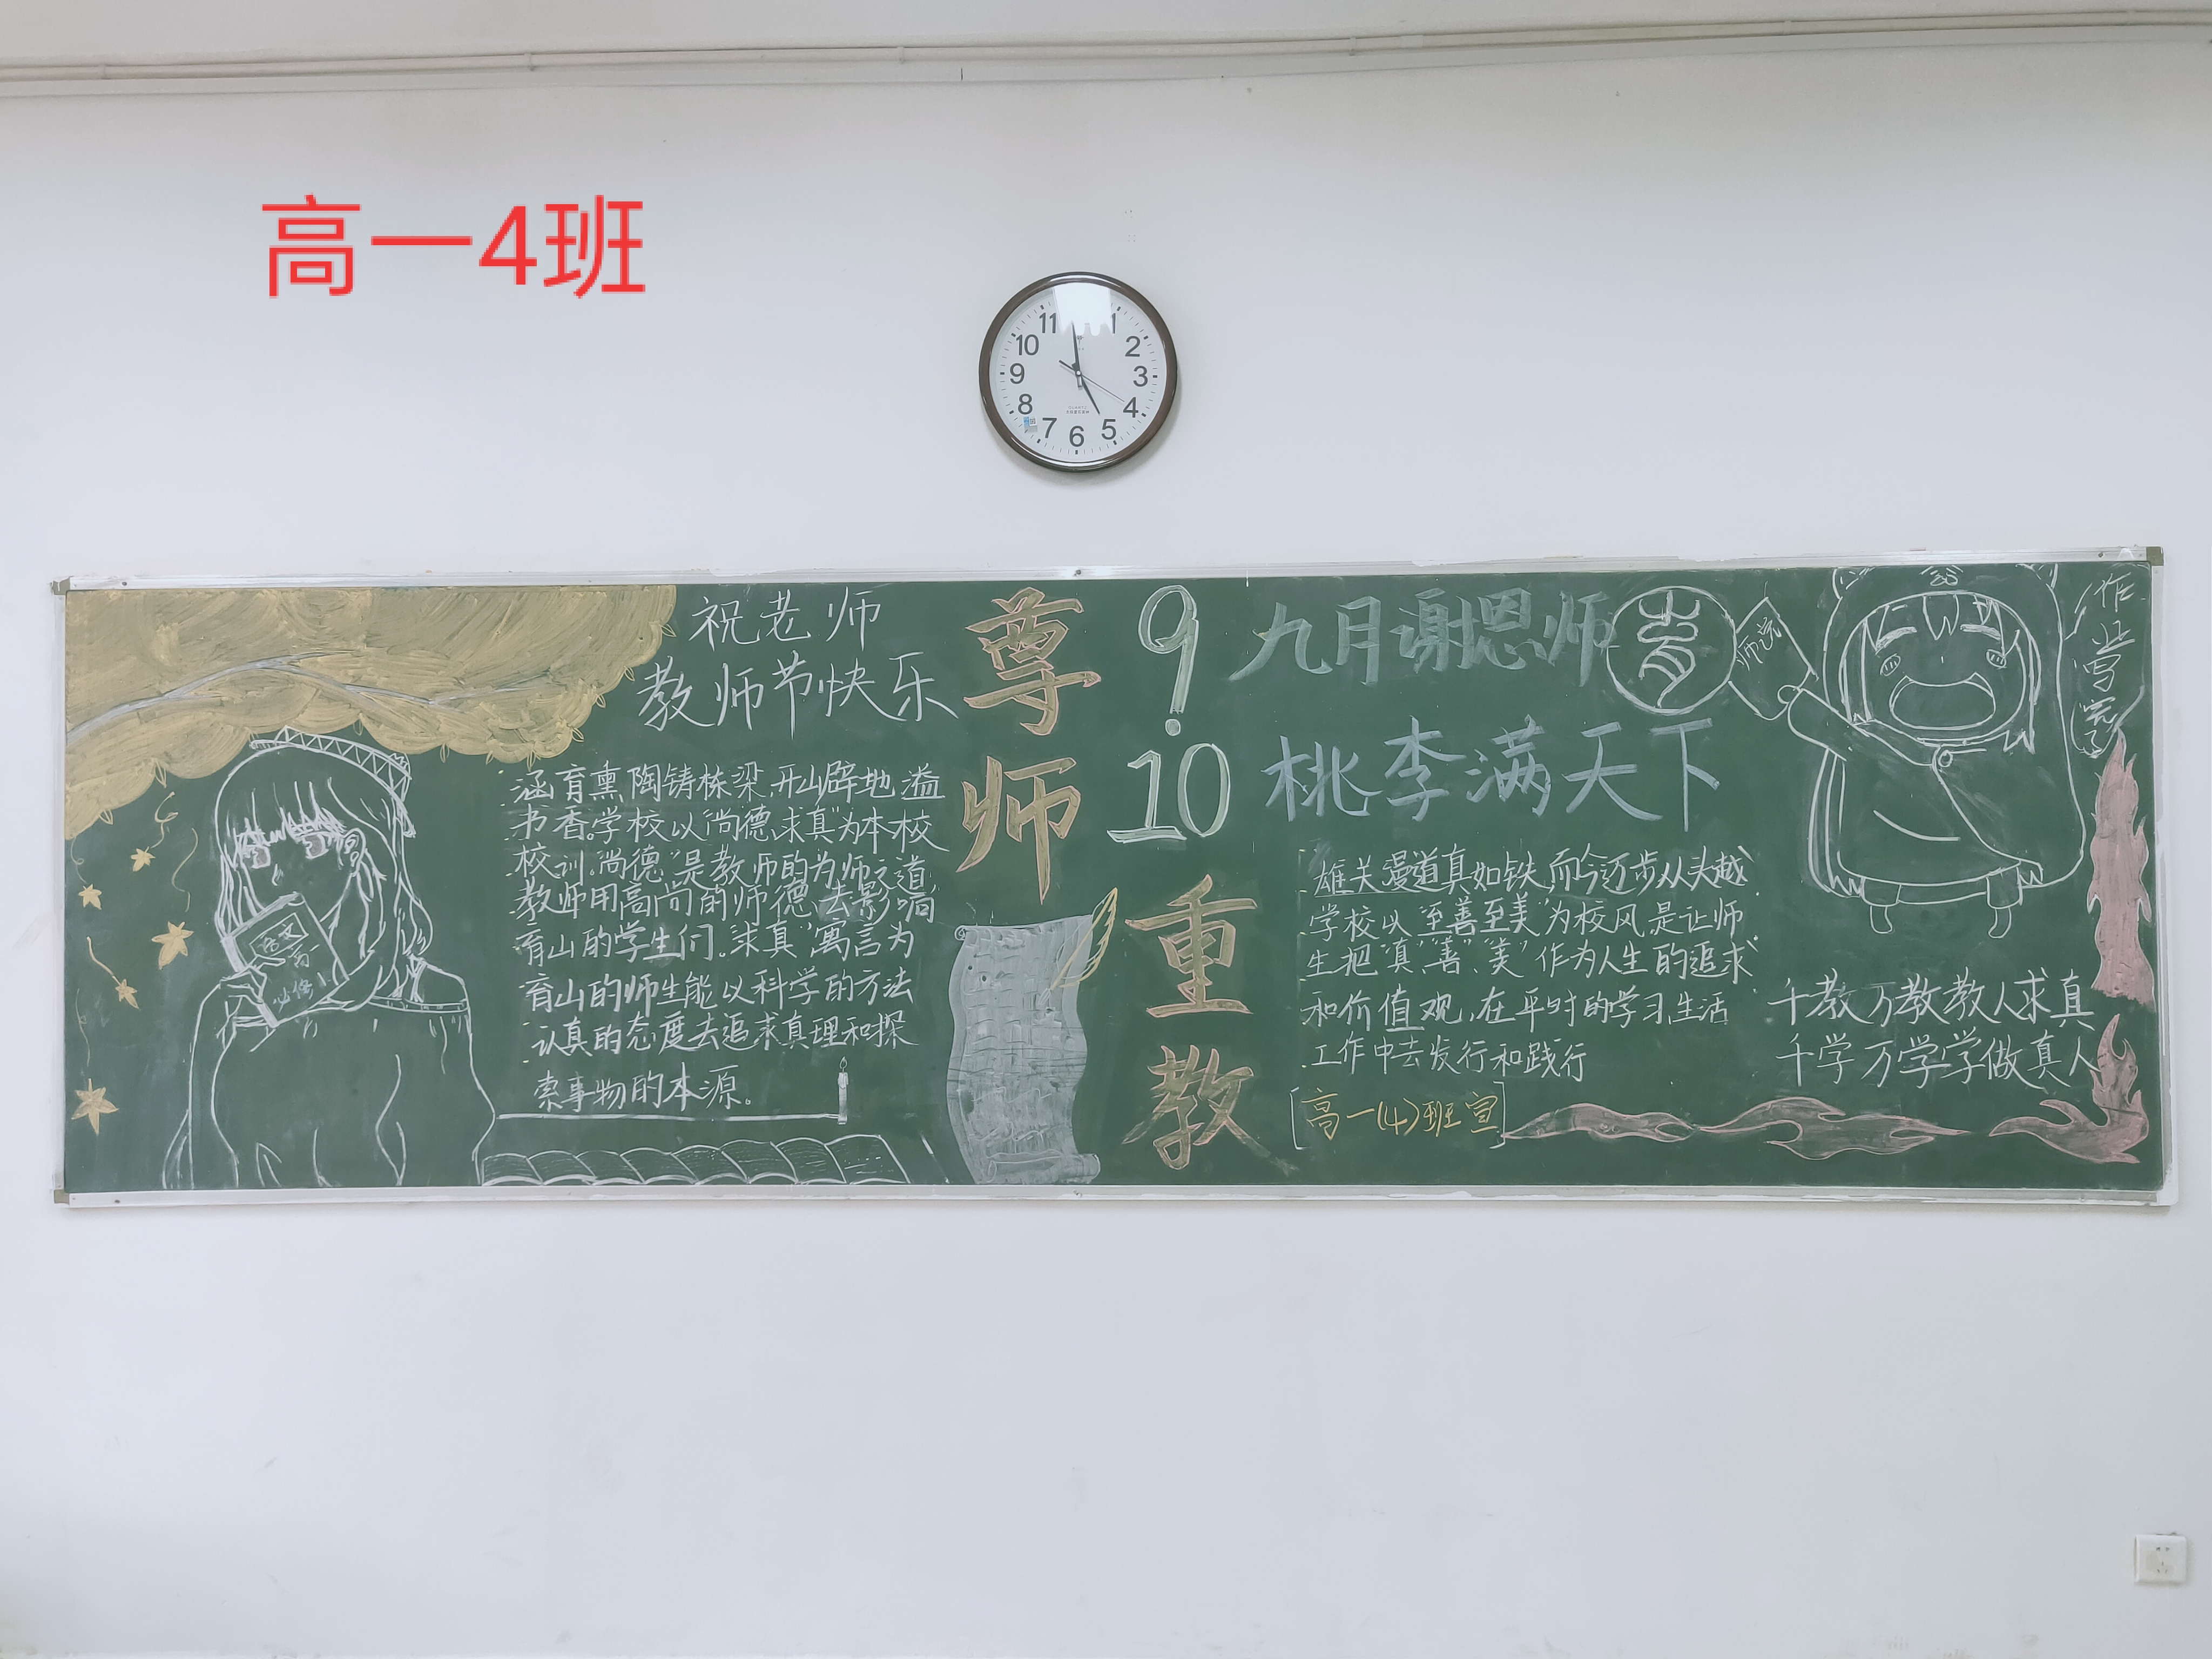 高一4班
11
1
10
2
9
3
8
4
7
5
6
QUARTZ
祝老师
教师节快乐
涵育熏陶铸栋梁,开山辟地溢
书香。学校以“尚德、求真”为本校
校训,“尚德”是教师的为师之道
教师用高尚的师德去影响
育山的学生们。“求真”寓言为
育山的师生能以科学的方法
认真的态度去追求真理和探
索事物的本源。
语文
必修
尊
师
重
教
9.
10
九月谢恩师
桃李满天下
雄关漫道真如铁,而今迈步从头越
学校以“至善至美”为校风,是让师
生把“真”、“善”、“美”作为人生的追求
和价值观,在平时的学习,生活
工作中去发行和践行
[高一(4)班宣]
作
业
写
完
了
千教万教教人求真
千学万学学做真人